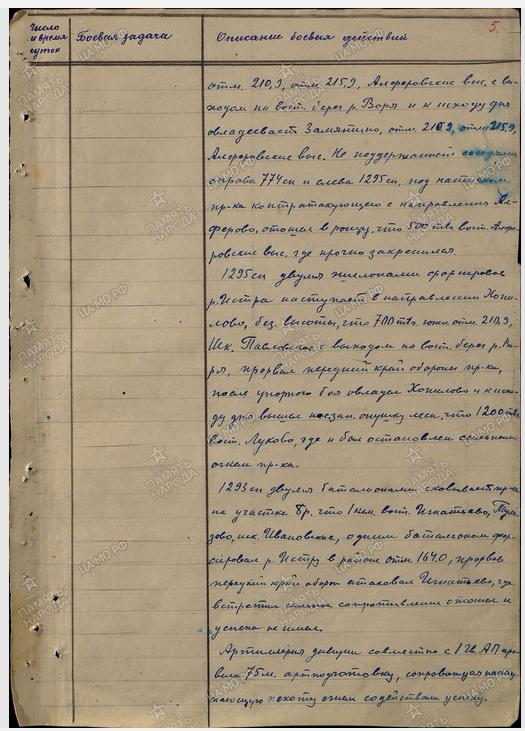 5.
Число и время суток
Боевая задача
Описание боевых действий
отм. 210,9, отм. 215,9, Алферовские выс. с вы-
ходом на вост. берег р. Воря и к исходу дня
овладевает Замятино, отм. 210,9, отм. 215,9,
Алферовские выс. Не поддержанный соседями
справа 774 сп и слева 1295 сп, под натиском
пр-ка контратакующего с направления Ал-
ферово, отошел в рощу, что 500 mtr вост. Алфе-
ровские выс. где прочно закрепился.
1295 сп двумя эшелонами форсировав
р. Истра наступает в направлении
без. высоты, что 700 mtr южн. отм. 210,9,
Шк. Павловское с выходом на вост. берег р. Во-
ря, прорвал передний край обороны пр-ка,
после упорного боя овладел и к исхо-
ду дня вышел на зап. опушку леса, что 1200 mtr
вост. Луково, где и был остановлен сильным
огнем пр-ка.
1293 сп двумя батальонами сковывает пр-ка
на участке бр. что 1 клм. вост. Игнатьево,
иск. Ивановское, одним батальоном фор-
сировал р. Истру в районе отм. 164.0, прорвав
передний край оборон. атаковал Игнатьево, где
встретил сильное сопротивление отошел и
успеха не имел.
Артиллерия дивизии совместно с 1 гв. АП про-
вела 75 м. артподготовку, сопровождая насту-
пающую пехоту огнем содействовала успеху.
ПАМЯТЬ НАРОДА
ЦАМО РФ